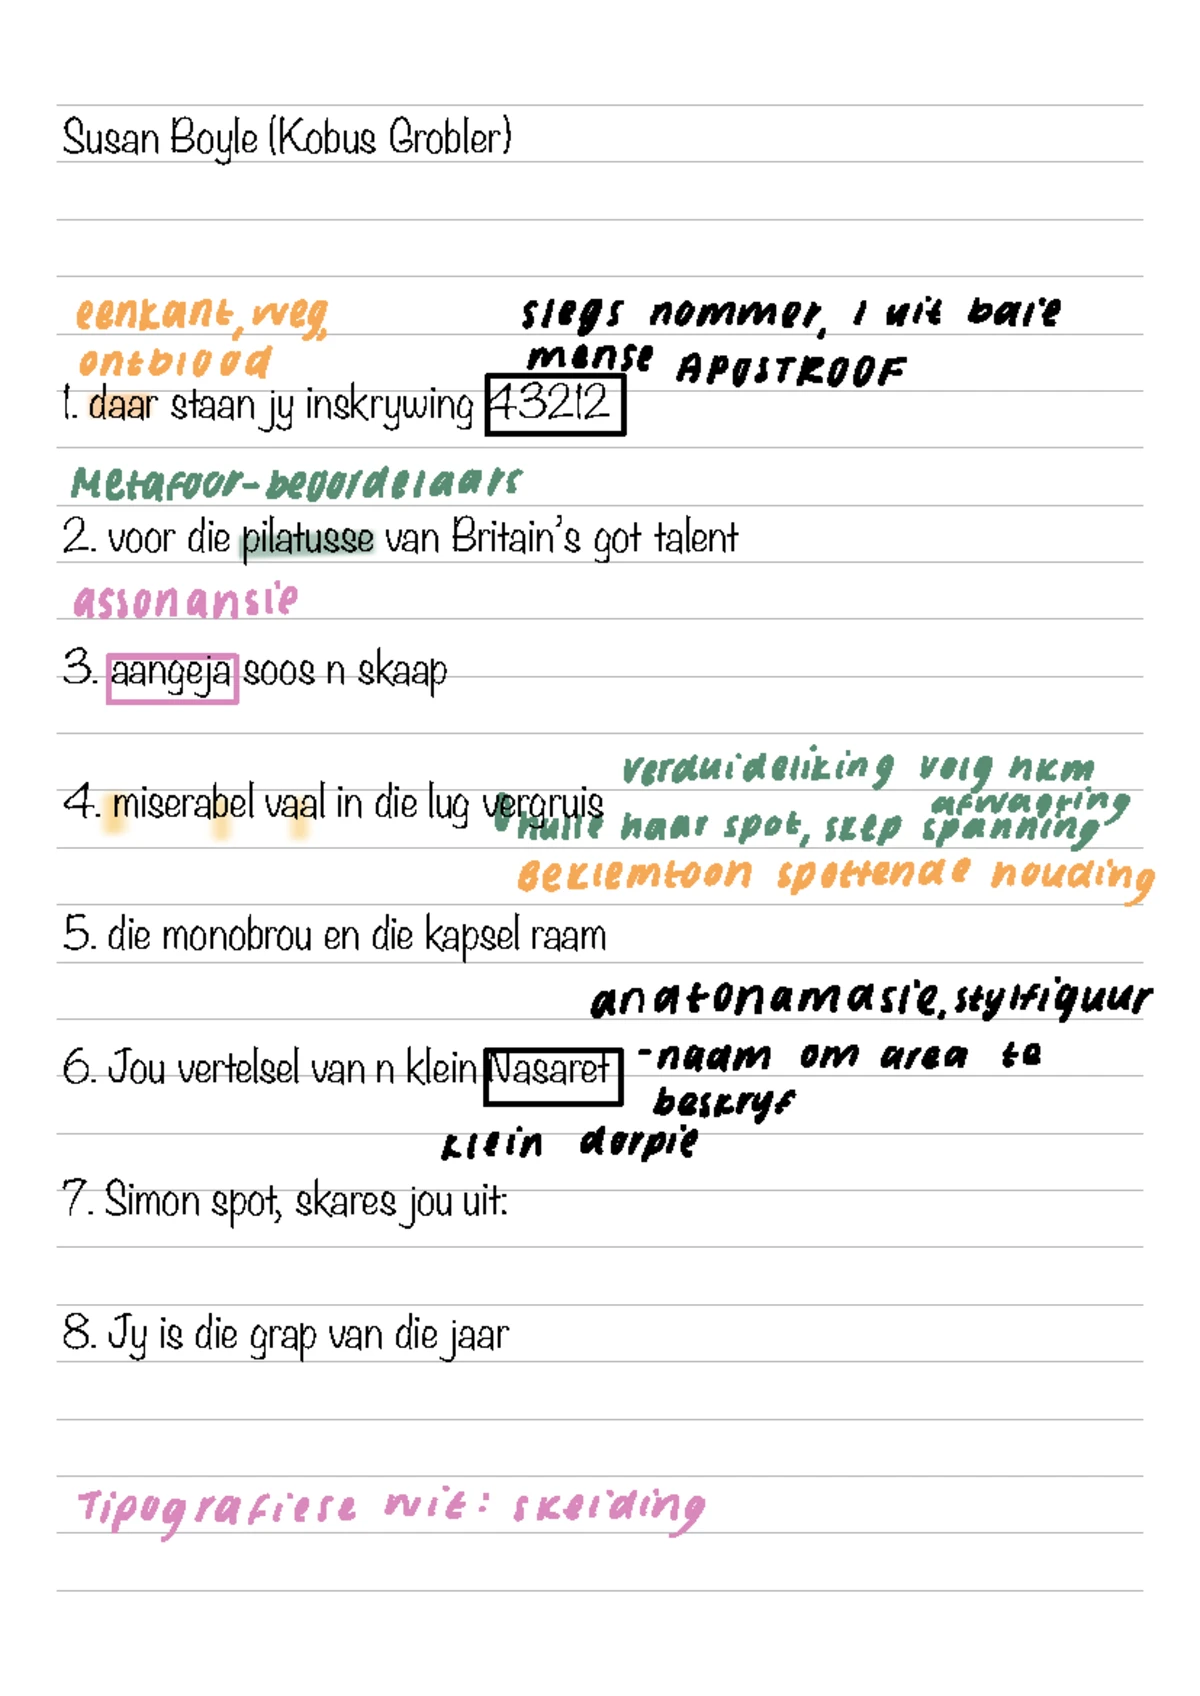 Susan Boyle (Kobus Grobler)
eenkant, weg,
ontblood
slegs nommer, 1 uit baie
mense APOSTROOF
1. daar staan jy inskrywing 43212
Metafoor-beoordelaars
2. voor die pilatusse van Britain's got talent
assonansie
3. aangeja soos n skaap
verduideliking volg nkm
4. miserabel vaal in die lug vergruis
afwagting
hulle haar spot, skep spanning
Beklemtoon spottende houding
5. die monobrou en die kapsel raam
anatonamasie, stylfiguur
6. Jou vertelsel van n klein Nasaret
-naam om area te
beskryf
klein dorpie
7. Simon spot, skares jou uit:
8. Jy is die grap van die jaar
Tipografiese wit: skeiding